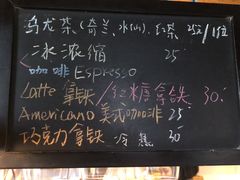 乌龙茶(奇兰、水仙)、红茶 25元/1位
冰浓缩 25
咖啡 Espresso
Latte 拿铁/红糖拿铁 30
Americano 美式咖啡 25
巧克力拿铁 冷 热 30